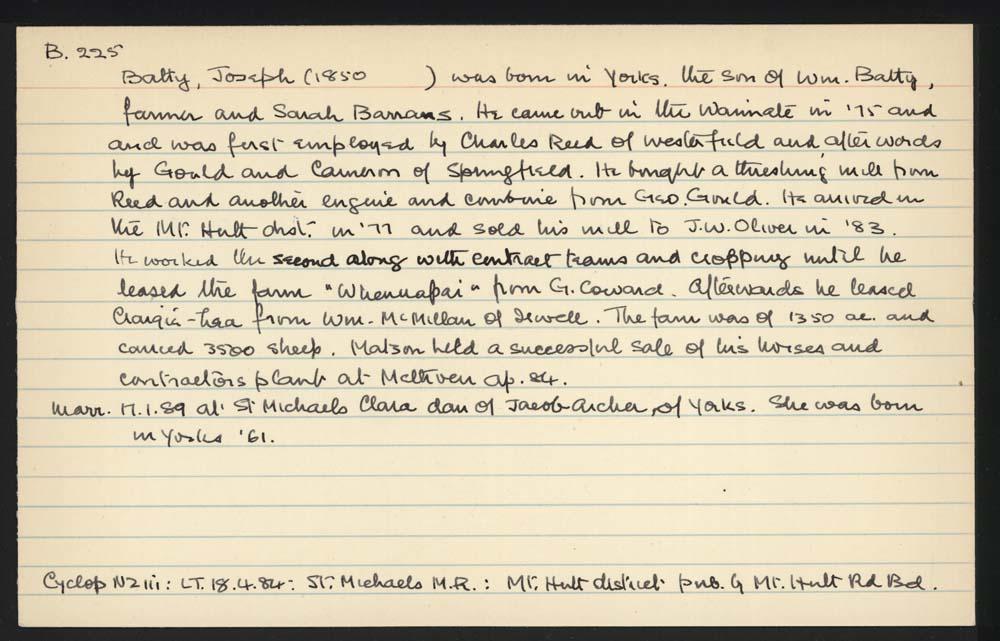 B. 225
Batty, Joseph (1850 ) was born in Yorks. the son of Wm. Batty,
farmer and Sarah Barrans. He came out in the Waimate in '75 and
and was first employed by Charles Reed of Westerfield and after words
by Gould and Cameron of Springfield. He bought a threshing mill from
Reed and another engine and combine from Geo. Gould. He arrived in
the Mt. Hutt dist. in '77 and sold his mill to J.W. Oliver in '83.
He worked the second along with contract teams and cropping until he
leased the farm "Whenuapai" from G. Coward. Afterwards he leased
Craigie-lea from Wm. McMillan of Sewell. The farm was of 1350 ac. and
carried 3500 sheep. Matson held a successful sale of his horses and
contractors plant at Methven ap. 84.
Marr. 17.1.89 at St Michaels Clara dau of Jacob Archer, of Yorks. She was born
in Yorks '61.
Cyclop NZ iii: LT. 18.4.84: St. Michaels M.R.: Mt. Hutt district pub. by Mt. Hutt Rd Bd.